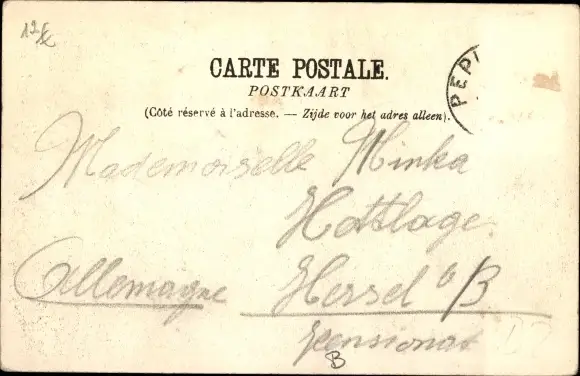 12€
CARTE POSTALE.
POSTKAART
(Côté réservé à l'adresse. — Zijde voor het adres alleen).
PEPI
Mademoiselle Minka
Hottlage
Hersel b/B
Allemagne
Pensionat
B